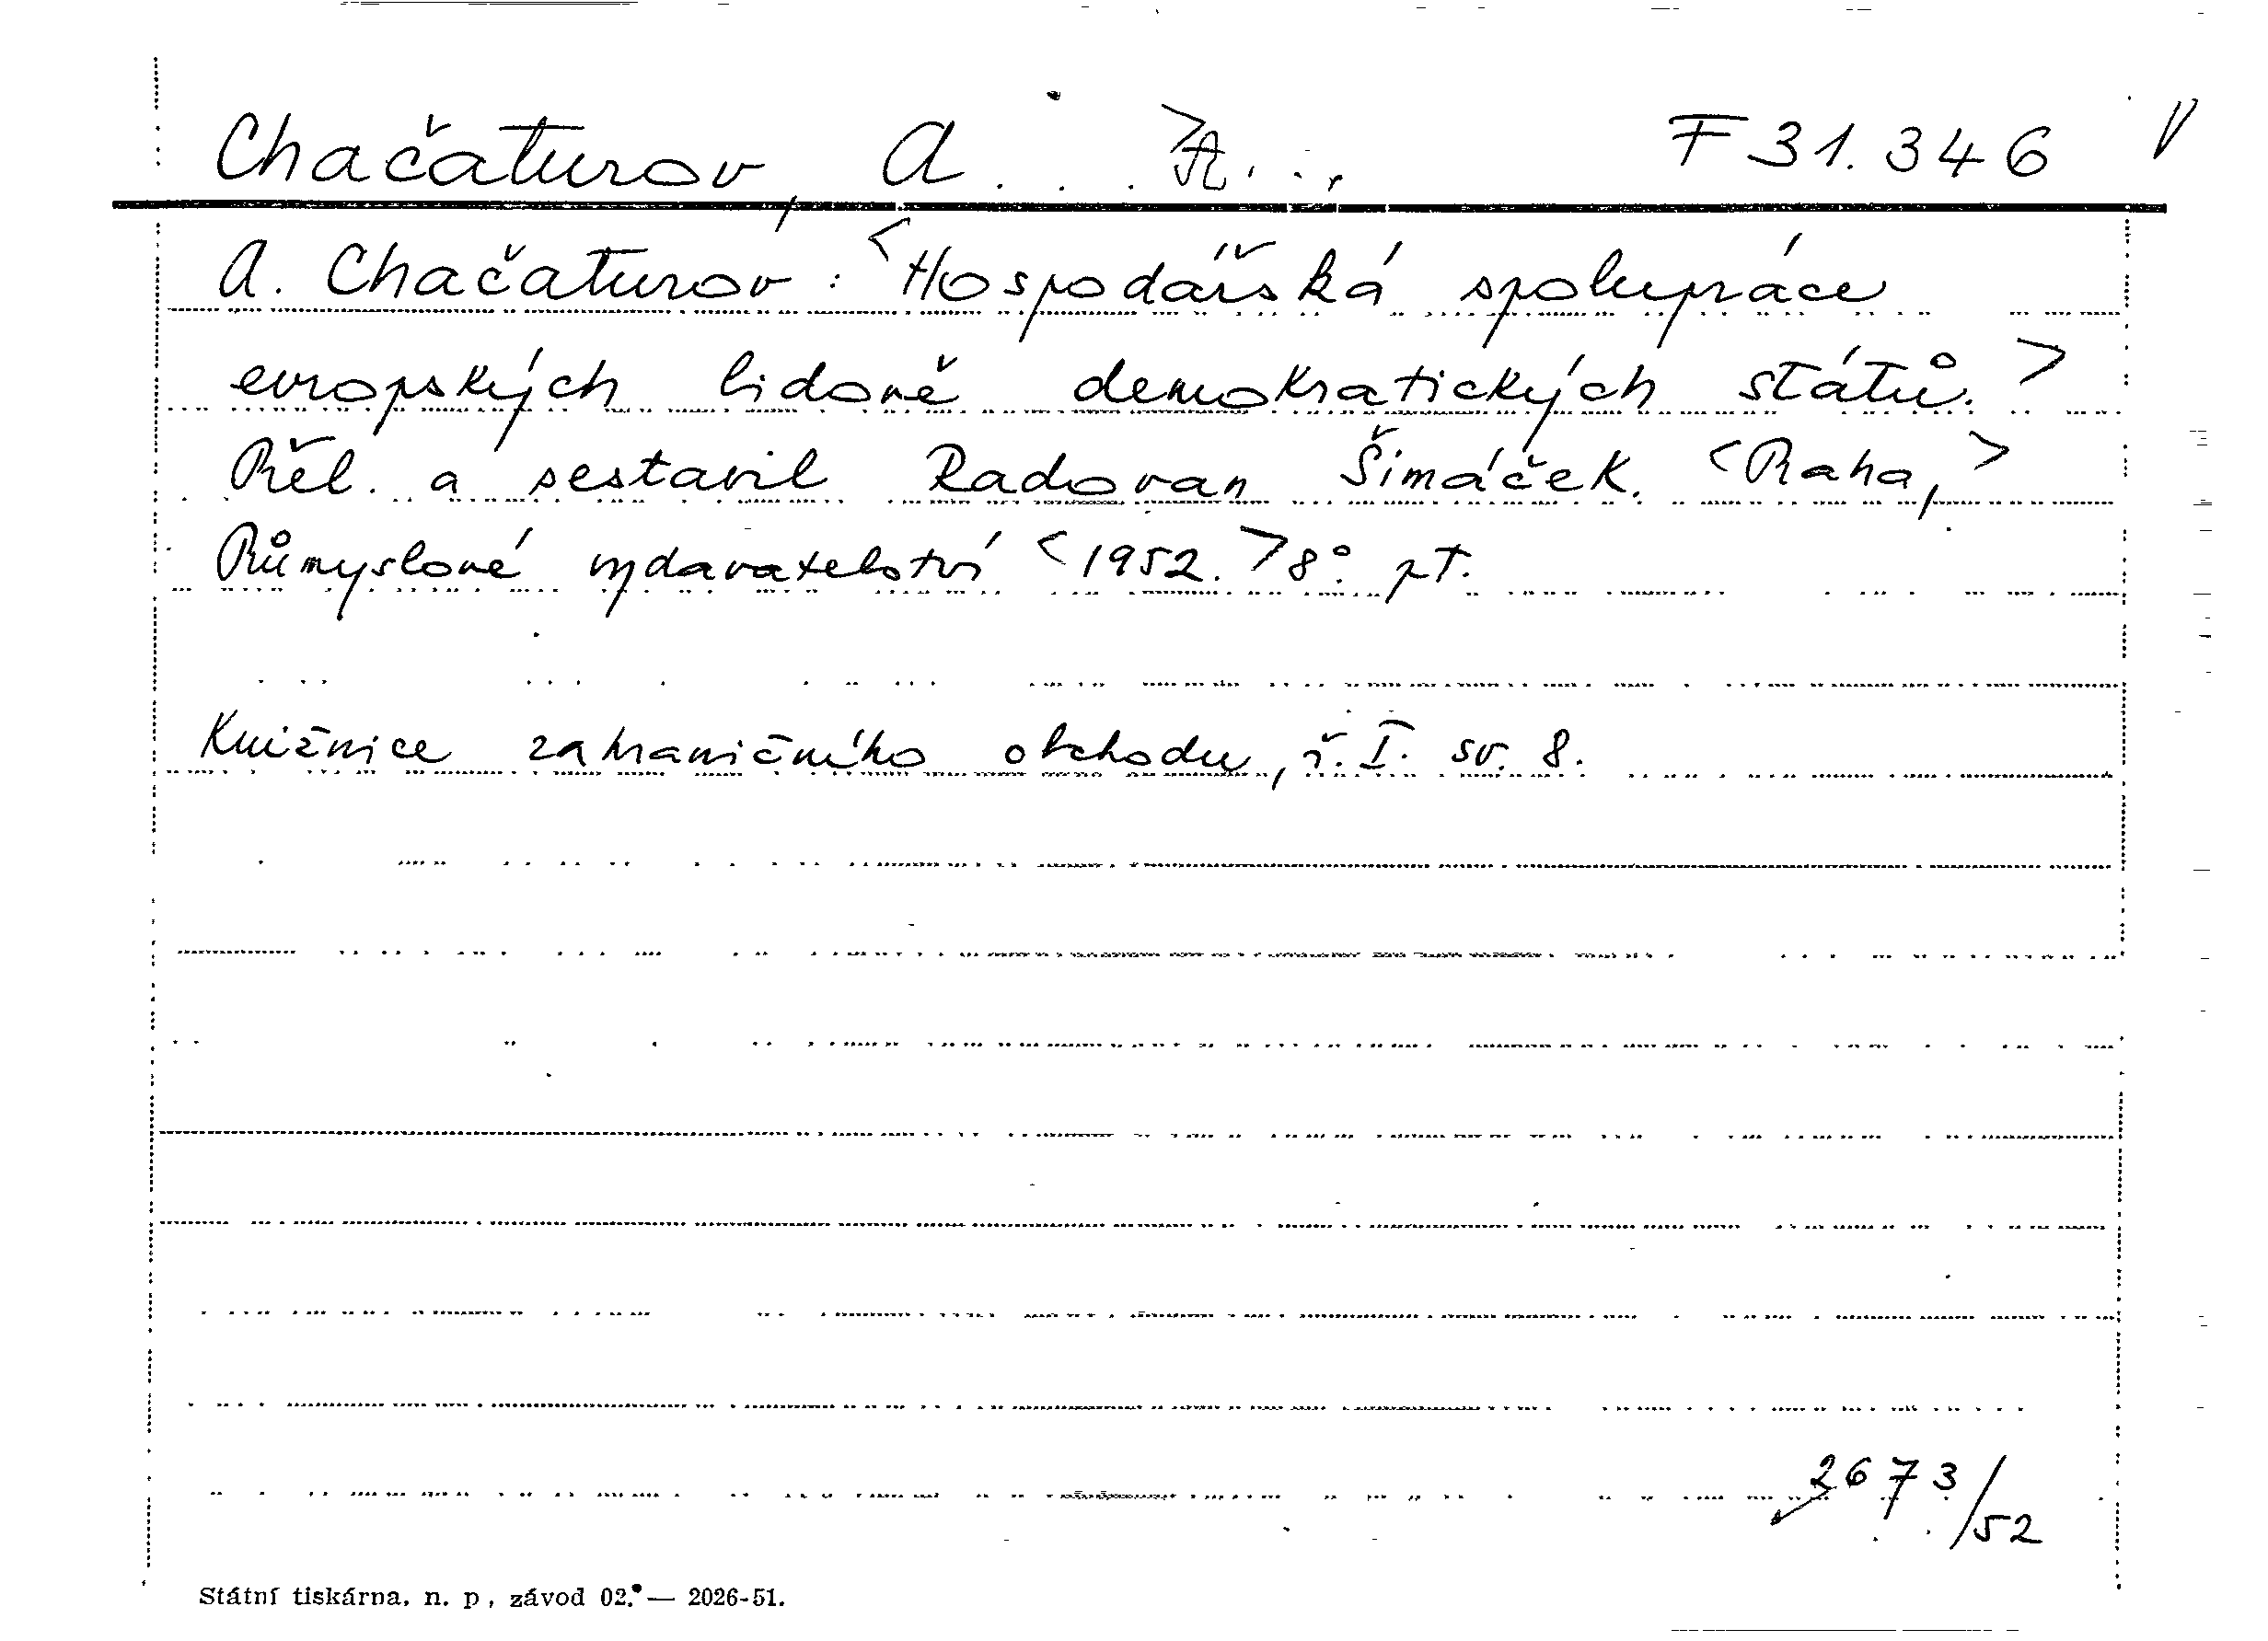 Chačaturov, A . . . F 31.346
A. Chačaturov : <Hospodářská spolupráce
evropských lidově demokratických států.>
Přel. a sestavil Radovan Šimáček. <Praha,>
Průmyslové vydavatelství <1952.> 8° pt.
Knižnice zahraničního obchodu, ř. I. sv. 8.
2673/52
Státní tiskárna, n. p., závod 02. — 2026-51.